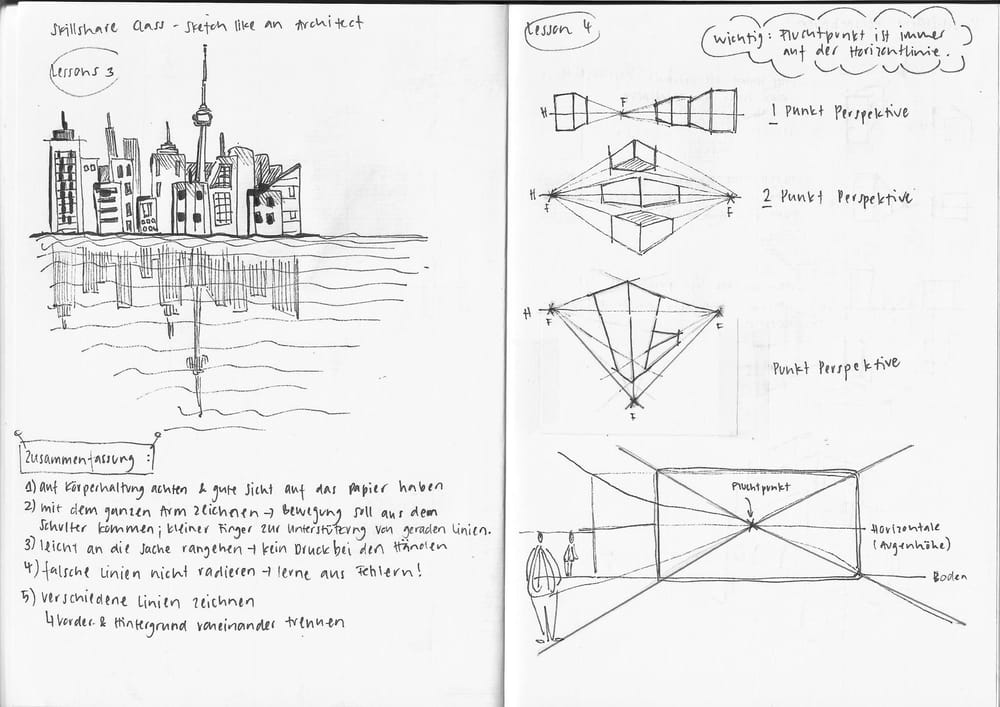 Skillshare Class - Sketch like an Architect
Lessons 3
Zusammenfassung :
1) auf Körperhaltung achten & gute Sicht auf das Papier haben
2) mit dem ganzen Arm zeichnen → Bewegung soll aus dem
Schulter kommen; kleiner Finger zur Unterstützung von geraden Linien.
3) leicht an die Sache rangehen → kein Druck bei den Händen
4) falsche Linien nicht radieren → lerne aus Fehlern!
5) verschiedene Linien zeichnen
↳ Vorder- & Hintergrund voneinander trennen
Lesson 4
Wichtig: Fluchtpunkt ist immer
auf der Horizontlinie.
H F
1 Punkt Perspektive
H F F
2 Punkt Perspektive
H F F
F
Punkt Perspektive
Fluchtpunkt
Horizontale
(Augenhöhe)
Boden